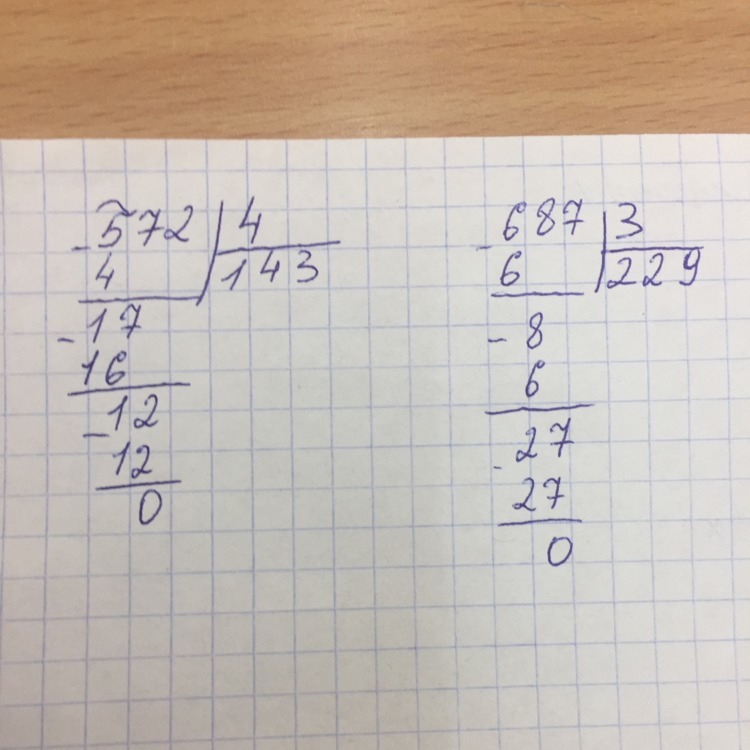 - 572 | 4
4 143
- 17
16
- 12
12
0
- 687 | 3
6 229
- 8
6
- 27
27
0